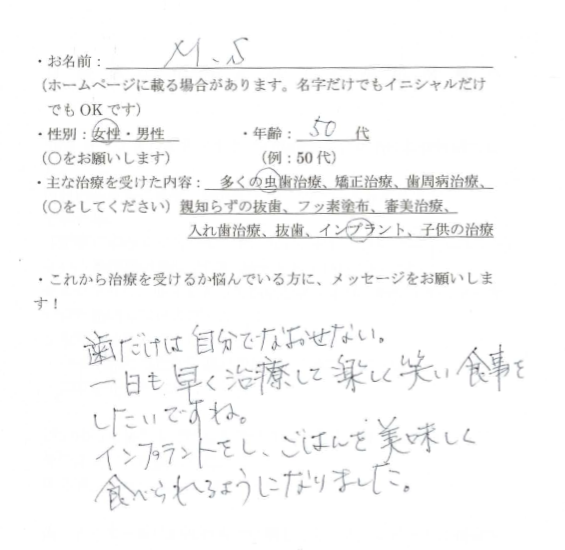 ・お名前： M.S
(ホームページに載る場合があります。名字だけでもイニシャルだけ
でも OK です)
・性別：女性・男性 ・年齢： 50 代
(〇をお願いします) (例：50 代)
・主な治療を受けた内容： 多くの虫歯治療、矯正治療、歯周病治療、
(〇をしてください) 親知らずの抜歯、フッ素塗布、審美治療、
入れ歯治療、抜歯、インプラント、子供の治療
・これから治療を受けるか悩んでいる方に、メッセージをお願いしま
す！
歯だけは自分でなおせない。
一日も早く治療して楽しく笑い食事を
したいですね。
インプラントをし、ごはんを美味しく
食べられるようになりました。